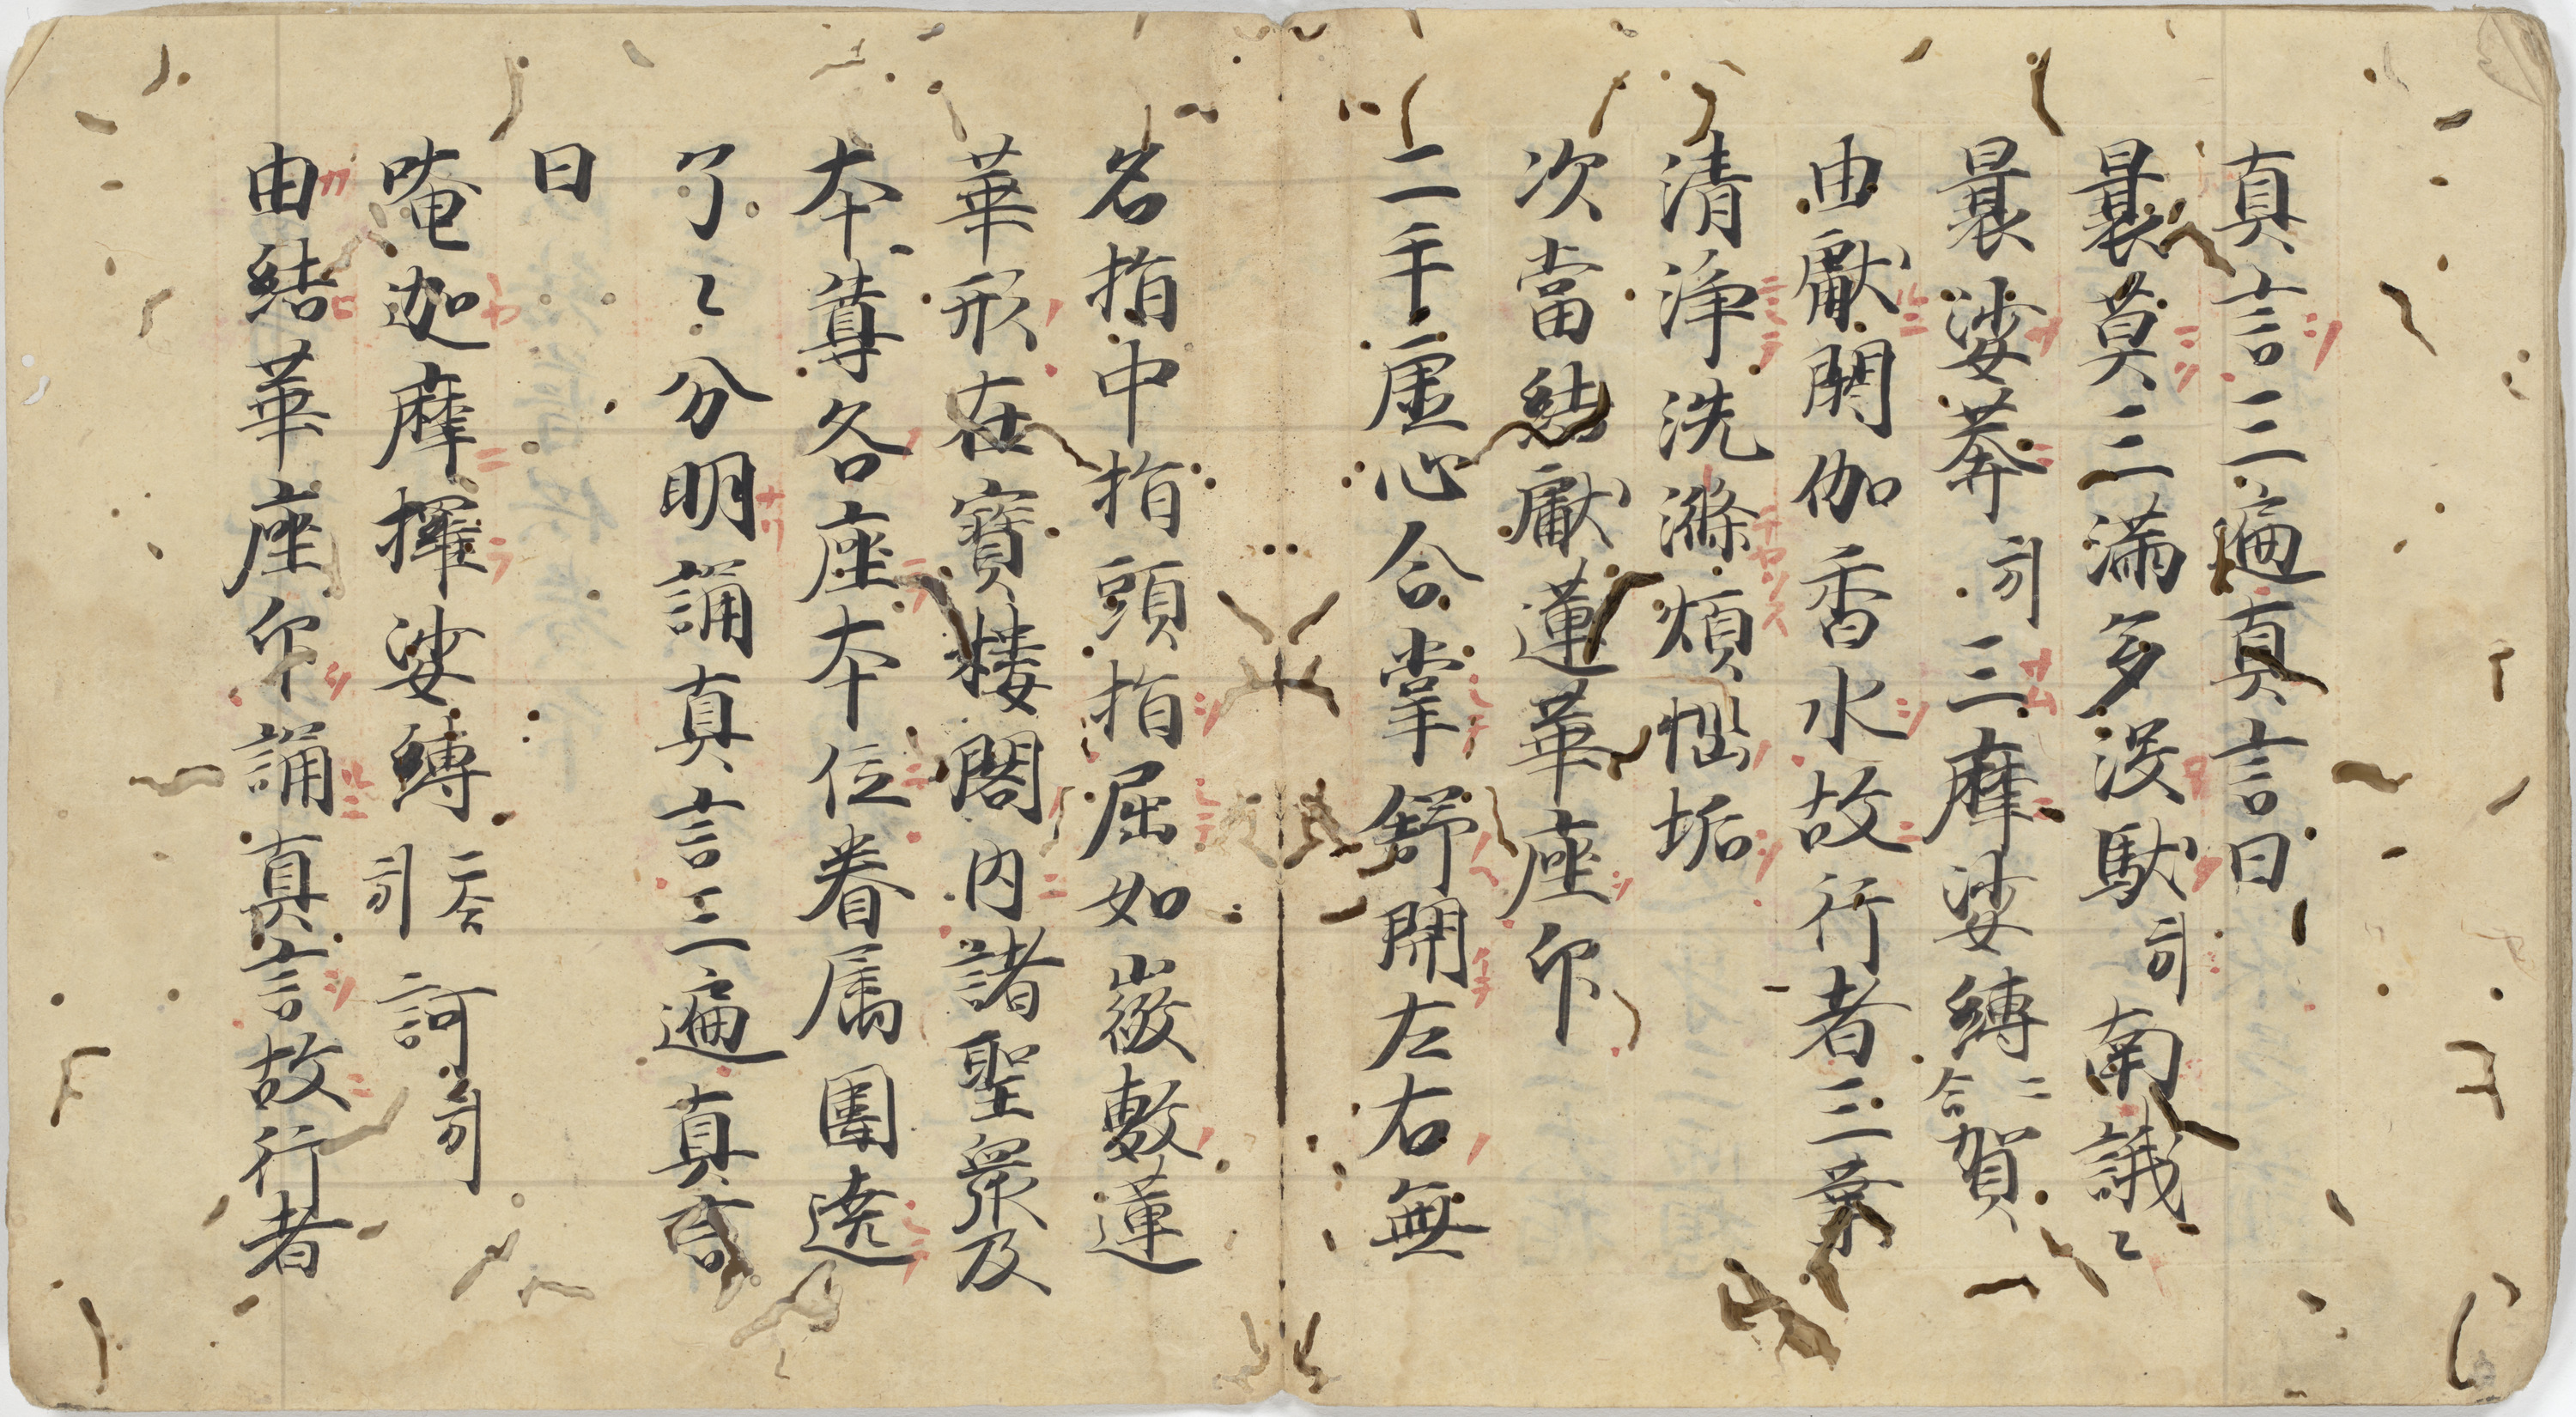 真言三遍真言曰
曩莫三滿多沒馱引南議〻
曩娑莽引三摩娑縛二合賀
由獻閼伽香水故行者三業
清淨洗滌煩惱垢
次當結獻蓮華座印
二手虛心合掌舒開左右無
名指中指頭指屈如微敷蓮
華形在寶樓閣内諸聖衆及
本尊各座本位眷属圍遶
了〻分明誦真言三遍真言
曰
唵迦摩攞娑縛二合引訶引
由結華座印誦真言故行者